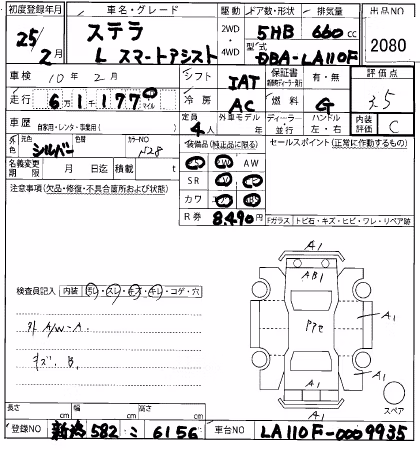 初度登録年月 車名・グレード 駆動 ドア数・形状 排気量 出品NO
25/2月 ステラ L スマートアシスト 2WD・4WD 5HB 660cc 2080
型式 DBA-LA110F
車検 10年2月 シフト IAT 保証書 有・無 評価点
走行 6万1千177 マイル 冷房 AC 燃料 G 3.5
車歴 自家用・レンタ・事業用( ) 定員 4人 外車モデル年 ディーラー・並行 ハンドル 左・右 内装評価 C
外色 元色 シルバー 色替 カラーNO S28 装備品(純正品に限る) セールスポイント(正常に作動するもの)
名義変更期限 月 日迄 積載 t AW
注意事項(欠品・修復・不具合箇所および状態) SR
カワ
R券 8,490 Fガラス トビ石・キズ・ヒビ・ワレ・リペア跡
検査員記入 内装 汚レ・スレ・キズ・キレ・コゲ・穴
外 A/W-A.
キズ. B.
A1
AB1
A1
A1
A1
A1
スペア
長さ cm 幅 cm 高さ cm
登録NO 新潟 582 こ 6156 車台NO LA110F-0009935